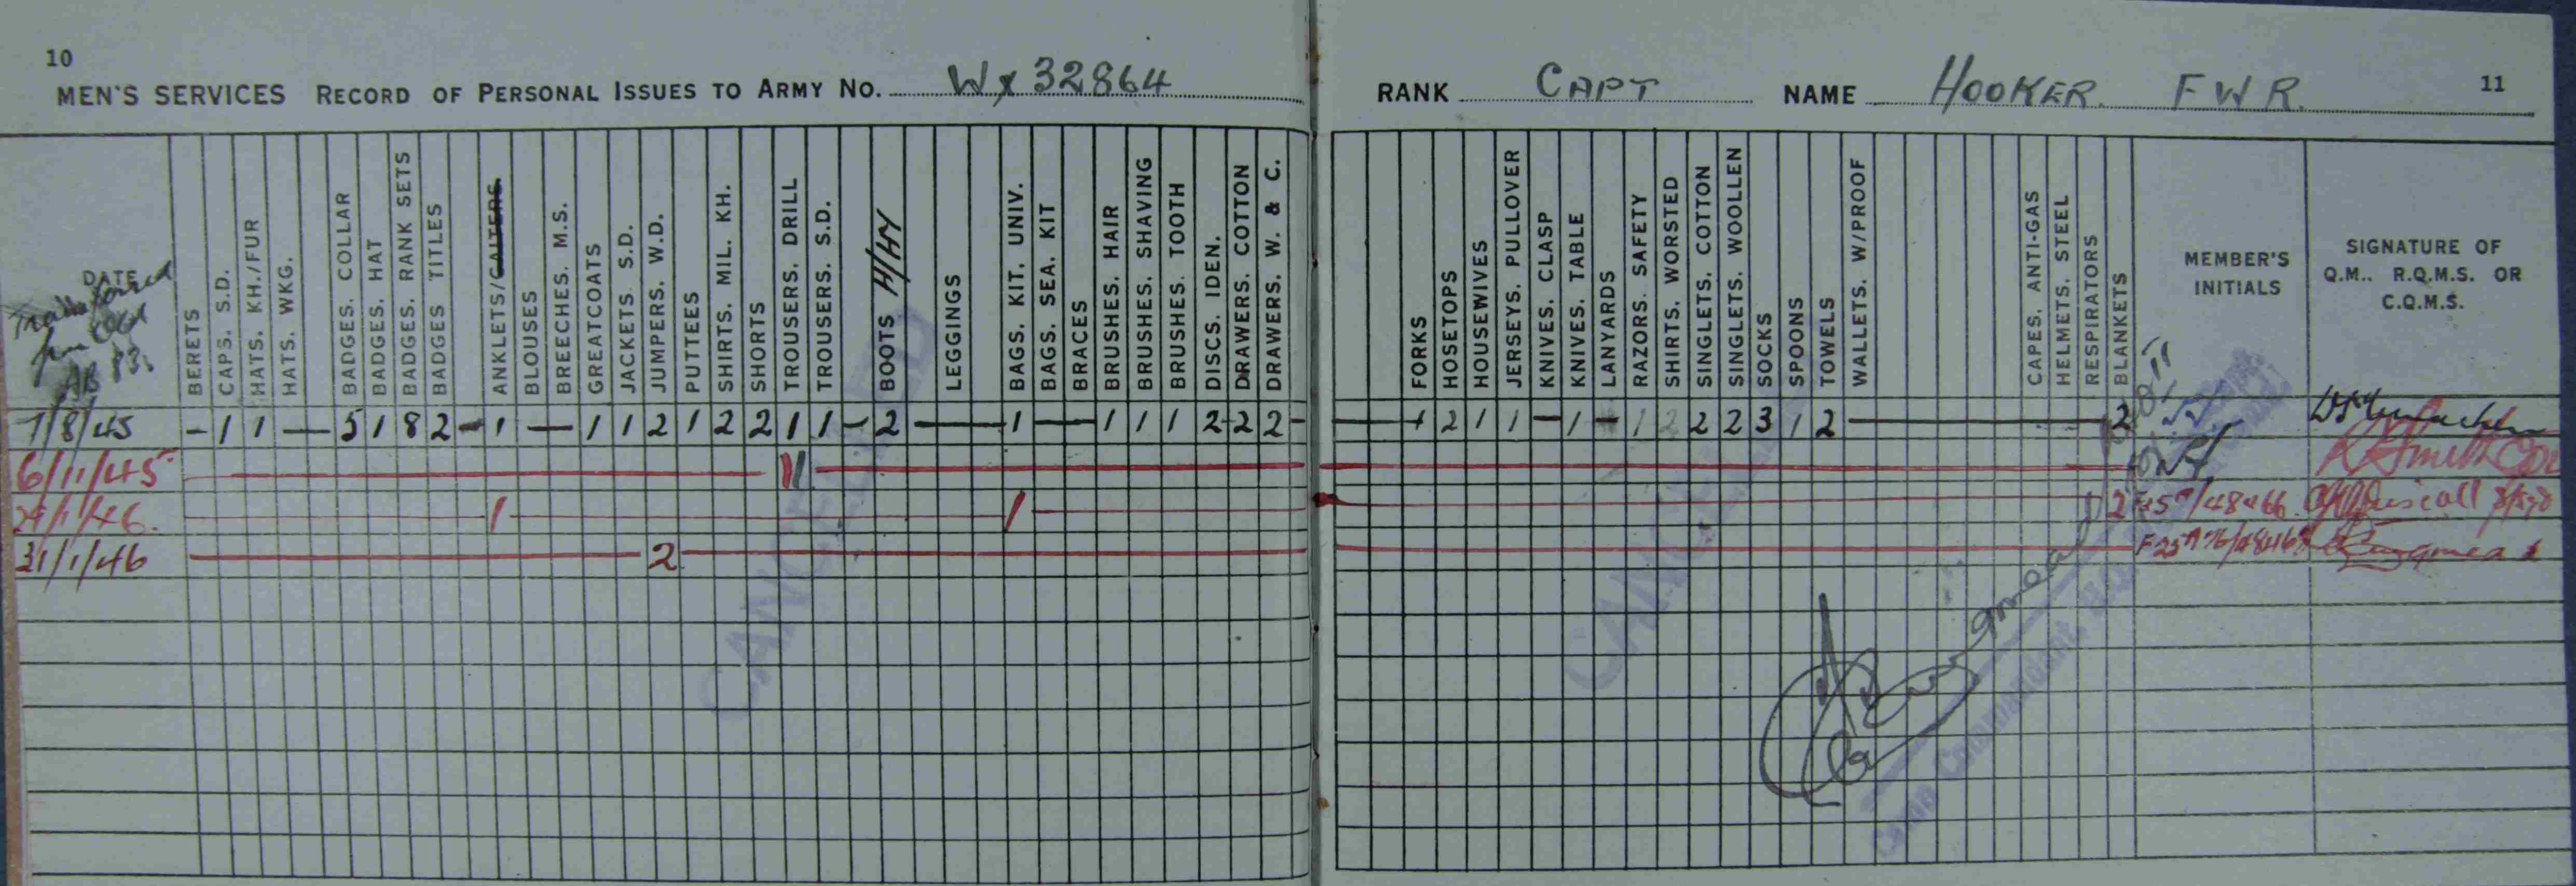 10
MEN'S SERVICES RECORD OF PERSONAL ISSUES TO ARMY NO. WX 32864
RANK CAPT NAME HOOKER. F W R. 11
DATE
Transferred
from
AB 83
BERETS
CAPS. S.D.
HATS. KH./FUR
HATS. WKG.
BADGES. COLLAR
BADGES. HAT
BADGES. RANK SETS
BADGES TITLES
ANKLETS/GAITERS.
BLOUSES
BREECHES. M.S.
GREATCOATS
JACKETS. S.D.
JUMPERS. W.D.
PUTTEES
SHIRTS. MIL. KH.
SHORTS
TROUSERS. DRILL
TROUSERS. S.D.
BOOTS
LEGGINGS
BAGS. KIT. UNIV.
BAGS. SEA. KIT
BRACES
BRUSHES. HAIR
BRUSHES. SHAVING
BRUSHES. TOOTH
DISCS. IDEN.
DRAWERS. COTTON
DRAWERS. W. & C.
FORKS
HOSETOPS
HOUSEWIVES
JERSEYS. PULLOVER
KNIVES. CLASP
KNIVES. TABLE
LANYARDS
RAZORS. SAFETY
SHIRTS. WORSTED
SINGLETS. COTTON
SINGLETS. WOOLLEN
SOCKS
SPOONS
TOWELS
WALLETS. W/PROOF
CAPES. ANTI-GAS
HELMETS. STEEL
RESPIRATORS
BLANKETS
MEMBER'S
INITIALS
SIGNATURE OF
Q.M.. R.Q.M.S. OR
C.Q.M.S.
7/8/45 – 1 1 — 5 1 8 2 – 1 — 1 1 2 1 2 2 1 1 – 2 — 1 — 1 1 1 2 2 2 – — 1 2 1 1 – 1 – 1 2 2 2 3 1 2 — 2
6/11/45 R Smith
29/1/46. 1 1 2
31/1/46 2
CANCELLED
CANCELLED
Camp Commandant. H.Q.